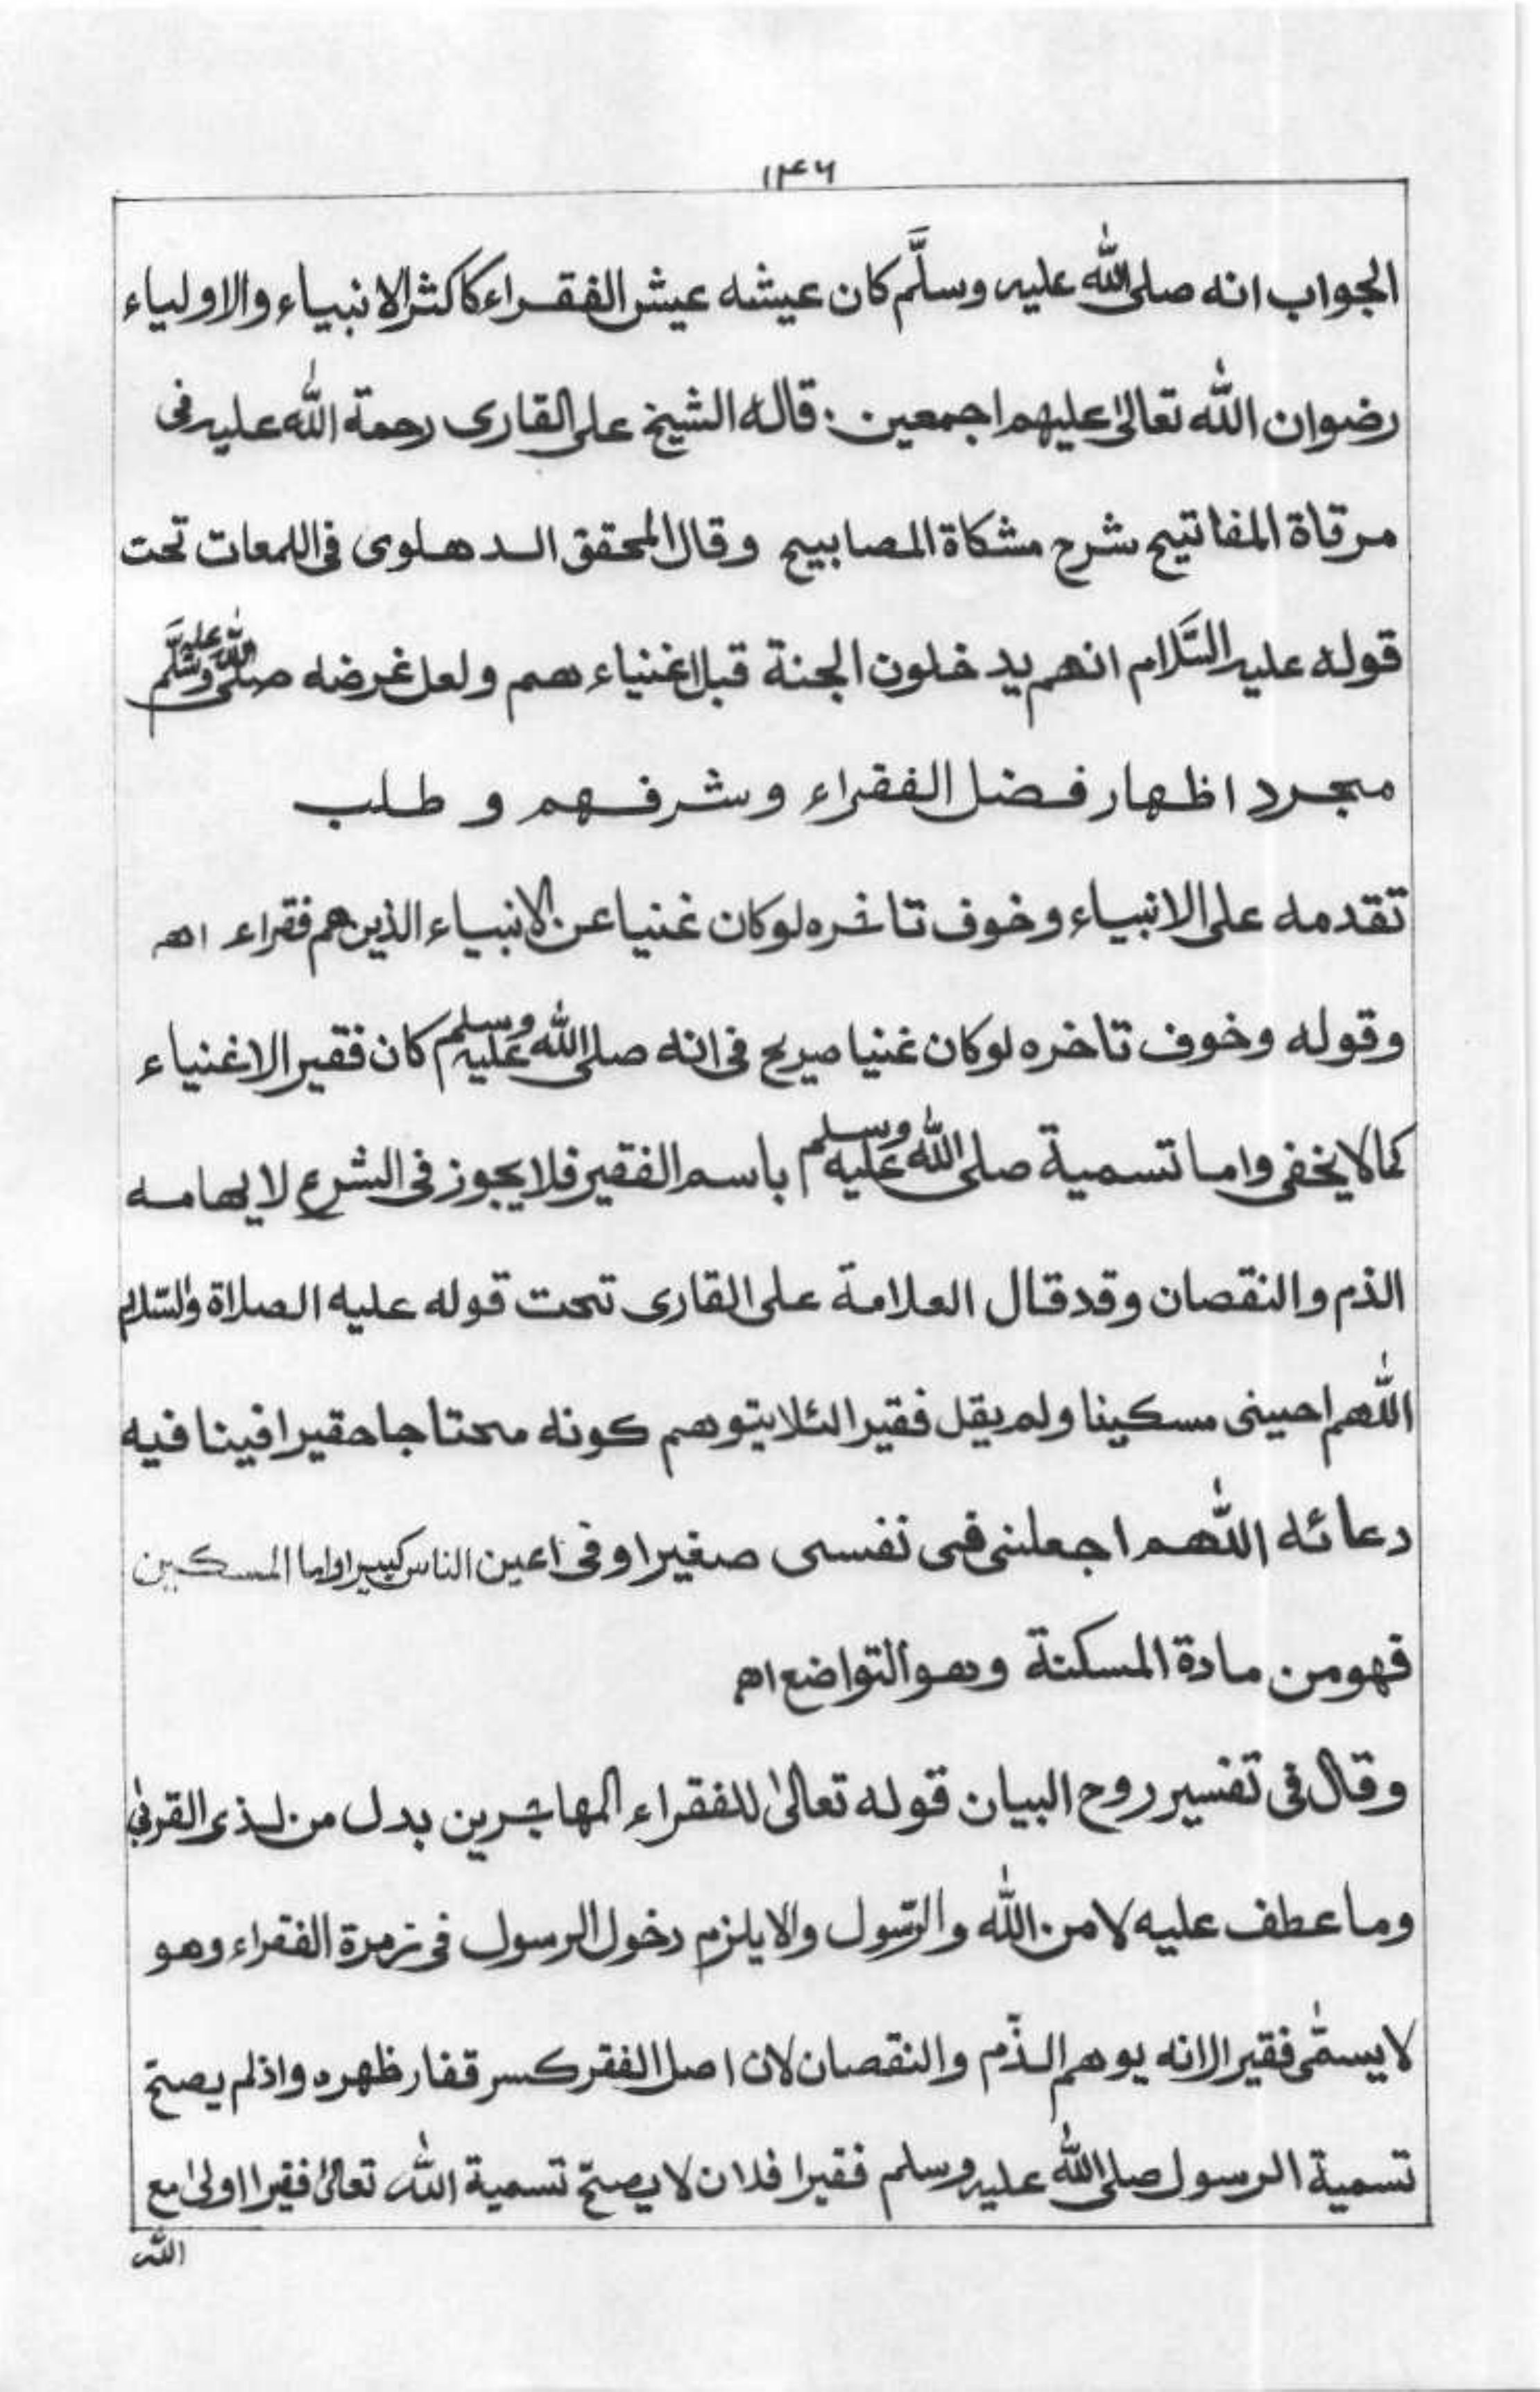 ١٣٤٦
الجواب انه صلى الله عليه وسلَّم كان عيشه عيش الفقراء كاكثر الانبياء والاولياء
رضوان الله تعالىٰ عليهم اجمعين. قاله الشيخ على القارى رحمة الله عليه فى
مرقاة المفاتيح شرح مشكاة المصابيح وقال المحقق الدهلوى فى اللمعات تحت
قوله عليه السَّلام انهم يدخلون الجنة قبل اغنياءهم ولعل غرضه صلى الله عليه وسلَّم
مجرد اظهار فضل الفقراء وشرفهم و طلب
تقدمه على الانبياء وخوف تاخره لوكان غنيا عن الانبياء الذين هم فقراء اهـ
وقوله وخوف تاخره لوكان غنيا صريح فى انه صلى الله عليه وسلم كان فقير الاغنياء
كمالا يخفى واما تسمية صلى الله عليه وسلم باسم الفقير فلا يجوز فى الشرع لايهامه
الذم والنقصان وقد قال العلامة على القارى تحت قوله عليه الصلاة والسّلام
اللّٰهم احيينى مسكينا ولم يقل فقيرا لئلا يتوهم كونه محتاجا حقيرا فينا فيه
دعائه اللّٰهم اجعلنى فى نفسى صغيرا وفى اعين الناس كبيرا واما المسكين
فهو من مادة المسكنة وهو التواضع اهـ
وقال فى تفسير روح البيان قوله تعالىٰ للفقراء المهاجرين بدل من لذى القربىٰ
وما عطف عليه لا من اللّٰه والرّسول والا يلزم دخول الرسول فى زمرة الفقراء وهو
لا يسمّى فقيرا لانه يوهم الذّم والنقصان لان اصل الفقر كسر قفار ظهره واذلم يصحّ
تسمية الرسول صلى اللّٰه عليه وسلم فقيرا فلان لا يصحّ تسمية اللّٰه تعالىٰ فقيرا اولىٰ مع
اللّٰه